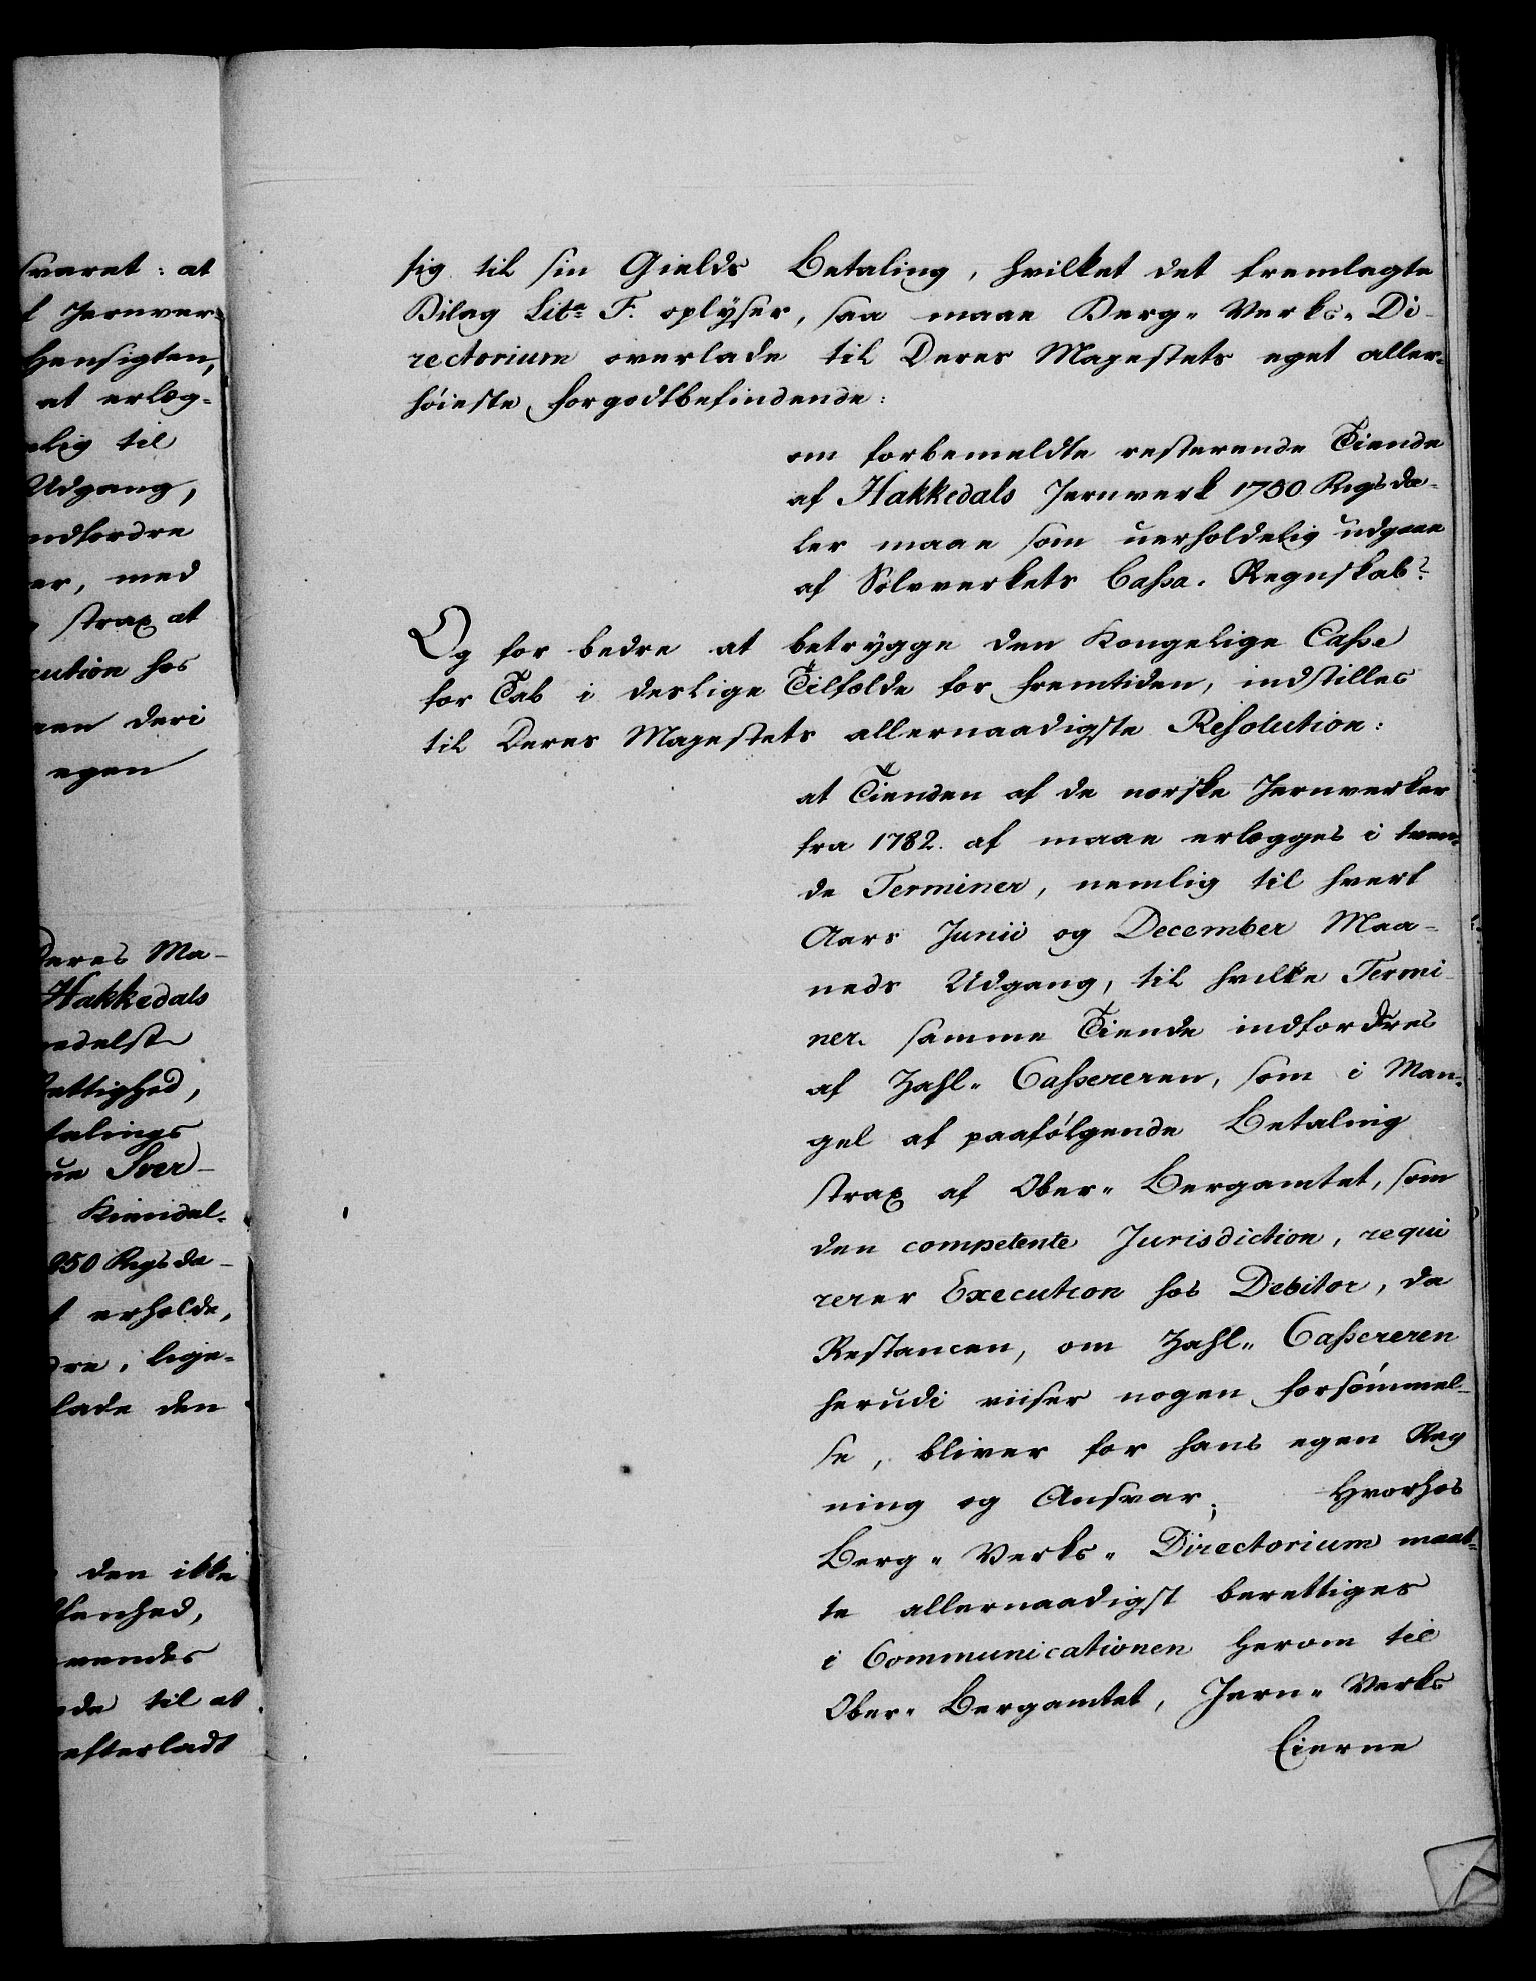 svaret: at
Jernver-
Hensigten,
at erlæg-
til
Udgang,
indfordre
er, med
strax at
cution hos
deri
egen
Deres Ma-
Hakkedals
medelst
ettighed,
talings
Sver-
Kiendel-
250 Rigsda-
erholde,
lige-
lade den
den ikke
enhed,
vendes
til at
efterladt
sig til sin Gields Betaling, hvilket det fremlagte
Bilag Lit: F. oplyser, saa maae Berg- Verks- Di-
rectorium overlade til Deres Majestets eget aller-
høieste forgodtbefindende:
om forbemeldte resterende Tiende
af Hakkedals Jernverk 1750 Rigsda-
ler maae som uerholdelig udgaae
af Sølvverkets Cassa- Regnskab?
Og for bedre at betrygge den Kongelige Casse
for Tab i deslige Tilfælde for fremtiden, indstilles
til Deres Majestets allernaadigste Resolution:
at Tienden af de norske Jernverker
fra 1782. af maae erlægges i tven-
de Terminer, nemlig til hvert
Aars Junii og December Maa-
neds Udgang, til hvilke Termi-
ner samme Tiende indfordres
af Zahl- Cassereren, som i Man-
gel af paafølgende Betaling
strax af Ober- Bergamtet, som
den competente Jurisdiction, requi
rerer Execution hos Debitor, da
Restancen, om Zahl- Cassereren
herudi viiser nogen forsømmel-
se, bliver for hans egen Reg
ning og Ansvar; Hvorhos
Berg- Verks- Directorium maat-
te allernaadigst berettiges
i Communicationen herom til
Ober- Bergamtet, Jern- Verks
Eierne